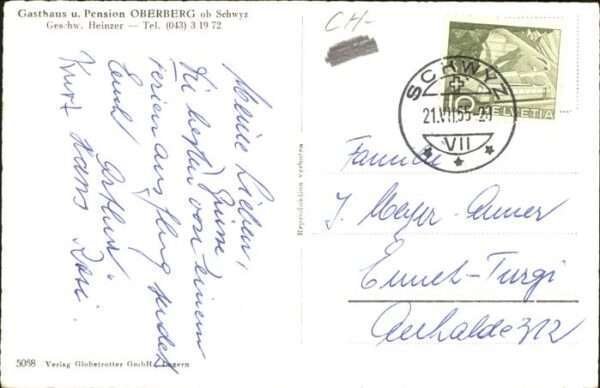 Gasthaus u. Pension OBERBERG ob Schwyz
Geschw. Heinzer — Tel. (043) 3 19 72
CH-
Meine Lieben,
Die besten Grüsse
von einem
Ferienausflug sendet
Euch Arthur
Kurt Hans Rosi
Reproduktion verboten
SCHWYZ
21.VII.55-21
VII
10 HELVETIA
Familie
J. Meyer-
Ennet-Turgi
Auhalde 312
5088 Verlag Globetrotter GmbH., Luzern